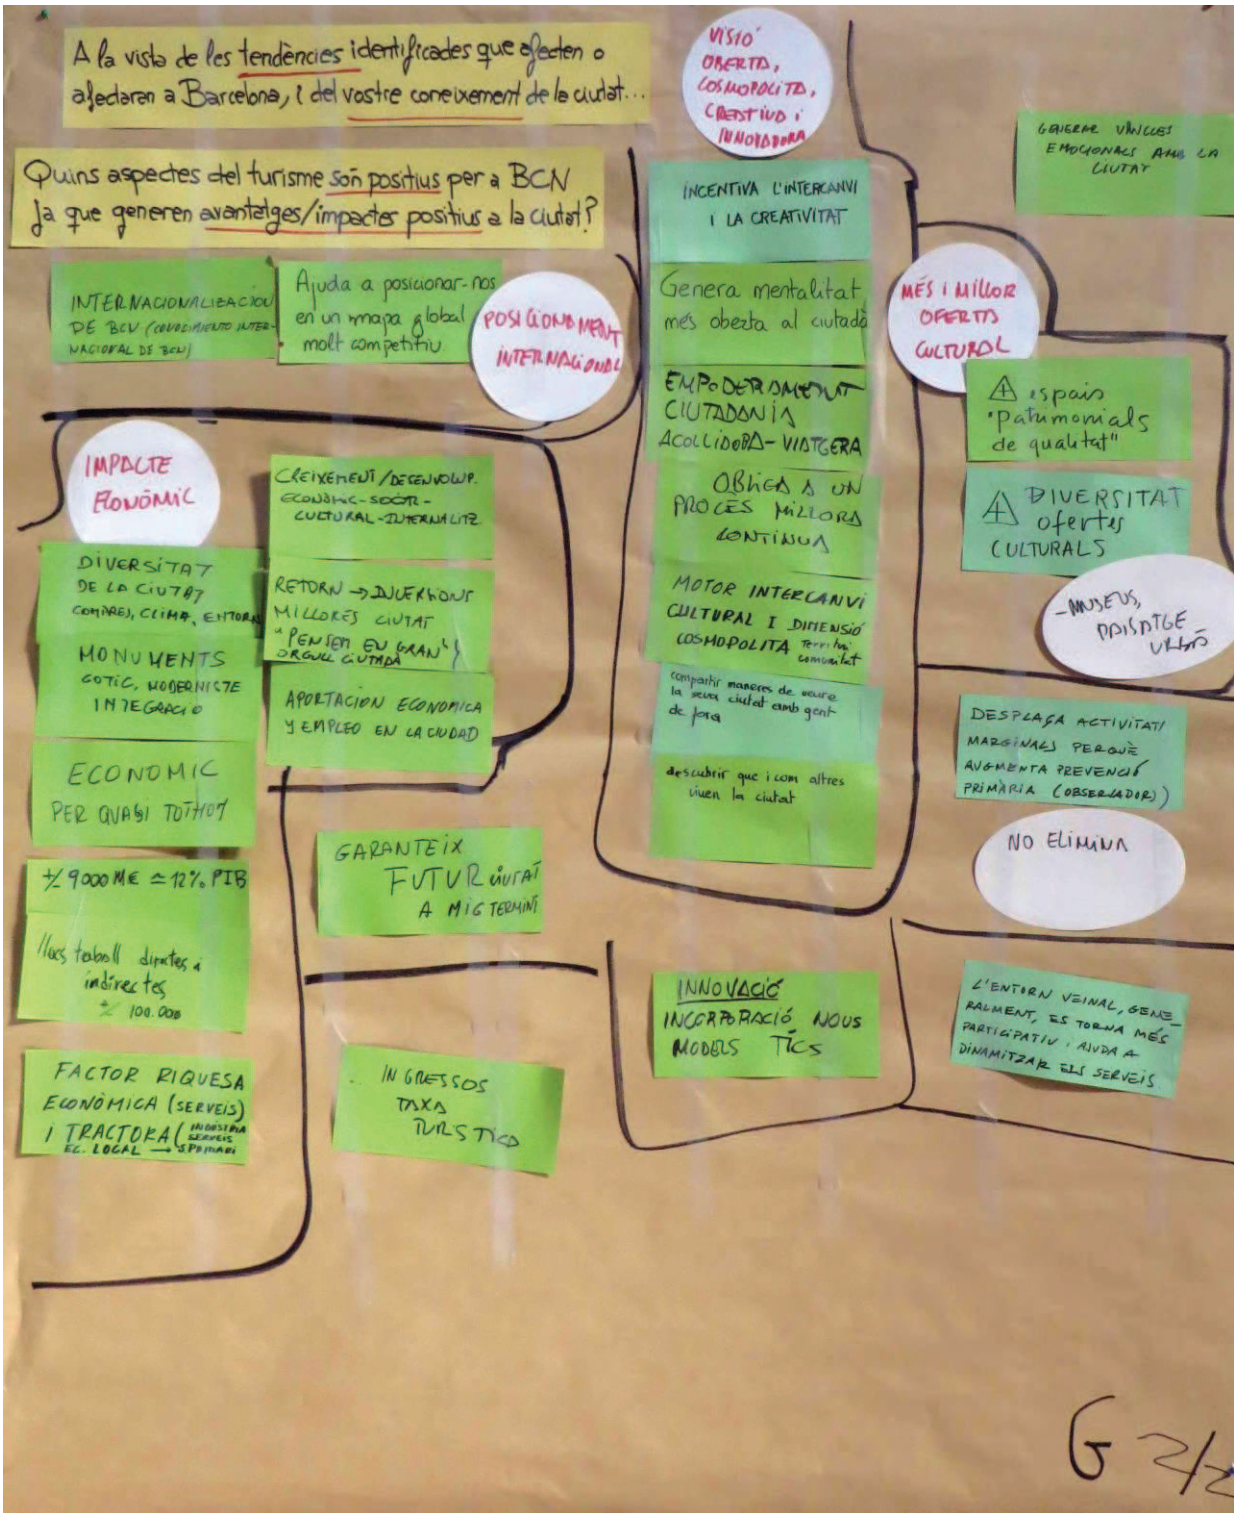 A la vista de les tendències identificades que afecten o
afectaran a Barcelona, i del vostre coneixement de la ciutat...
Quins aspectes del turisme són positius per a BCN
ja que generen avantatges/impactes positius a la ciutat?
INTERNACIONALIZACION
DE BCN (CONOCIMIENTO INTER-
NACIONAL DE BCN)
Ajuda a posicionar-nos
en un mapa global
molt competitiu.
POSICIONAMENT
INTERNACIONAL
IMPACTE
ECONÒMIC
DIVERSITAT
DE LA CIUTAT
COMPRES, CLIMA, ENTORN
MONUMENTS
GOTIC, MODERNISTE
INTEGRACIO
ECONOMIC
PER QUASI TOTHOM
+/- 9000 M€ ≃ 12% PIB
llocs treball directes i
indirectes
+/- 100.000
FACTOR RIQUESA
ECONÒMICA (SERVEIS)
I TRACTORA (INDÚSTRIA
SERVEIS
EC. LOCAL → S. PRIMARI
CREIXEMENT/DESENVOLUP.
ECONÒMIC-SOCIAL-
CULTURAL-INTERNALITZ.
RETORN → INVERSIONS
MILLORES CIUTAT
"PENSEM EN GRAN"
ORGULL CIUTADÀ
APORTACION ECONOMICA
Y EMPLEO EN LA CIUDAD
GARANTEIX
FUTUR CIUTAT
A MIG TERMINI
INGRESSOS
TAXA
TURÍSTICA
VISIÓ
OBERTA,
COSMOPOLITA,
CREATIVA i
INNOVADORA
INCENTIVA L'INTERCANVI
I LA CREATIVITAT
Genera mentalitat
més oberta al ciutadà
EMPODERAMENT
CIUTADANIA
ACOLLIDORA-VIATGERA
OBLIGA A UN
PROCÉS MILLORA
CONTINUA
MOTOR INTERCANVI
CULTURAL I DIMENSIÓ
COSMOPOLITA territori
comunitat
compartir maneres de veure
la seva ciutat amb gent
de fora
descubrir que i com altres
viuen la ciutat
INNOVACIÓ
INCORPORACIÓ NOUS
MODELS TICS
GENERAR VINCLES
EMOCIONALS AMB LA
CIUTAT
MÉS I MILLOR
OFERTA
CULTURAL
+ espais
"patrimonials
de qualitat"
+ DIVERSITAT
ofertes
CULTURALS
-MUSEUS,
PAISATGE
URBÀ
DESPLAÇA ACTIVITATS
MARGINALS PERQUÈ
AUGMENTA PREVENCIÓ
PRIMÀRIA (OBSERVADORS)
NO ELIMINA
L'ENTORN VEINAL, GENE-
RALMENT, ES TORNA MÉS
PARTICIPATIU i AJUDA A
DINAMITZAR ELS SERVEIS
G 2/2